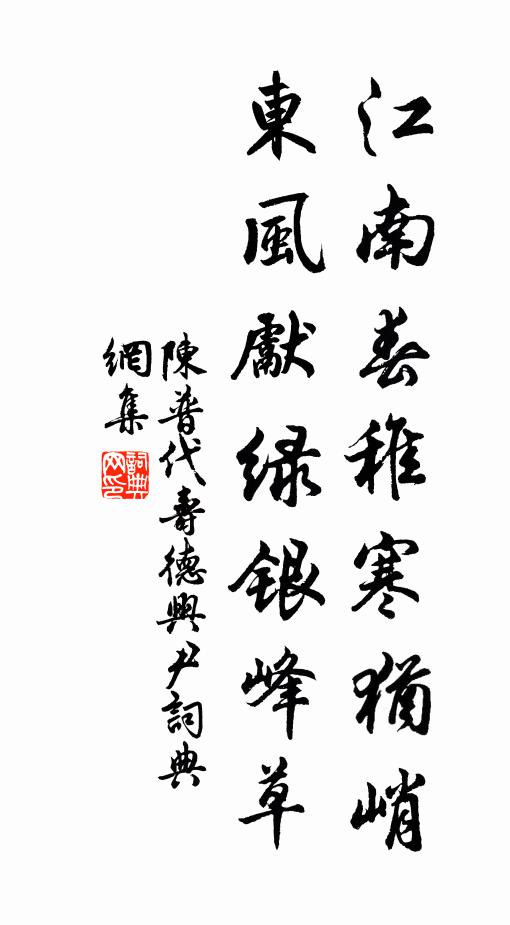 江南春稚寒猶峭
東風獻緑銀峰草
陳普代壽德興尹詞典
網集
詞典網印